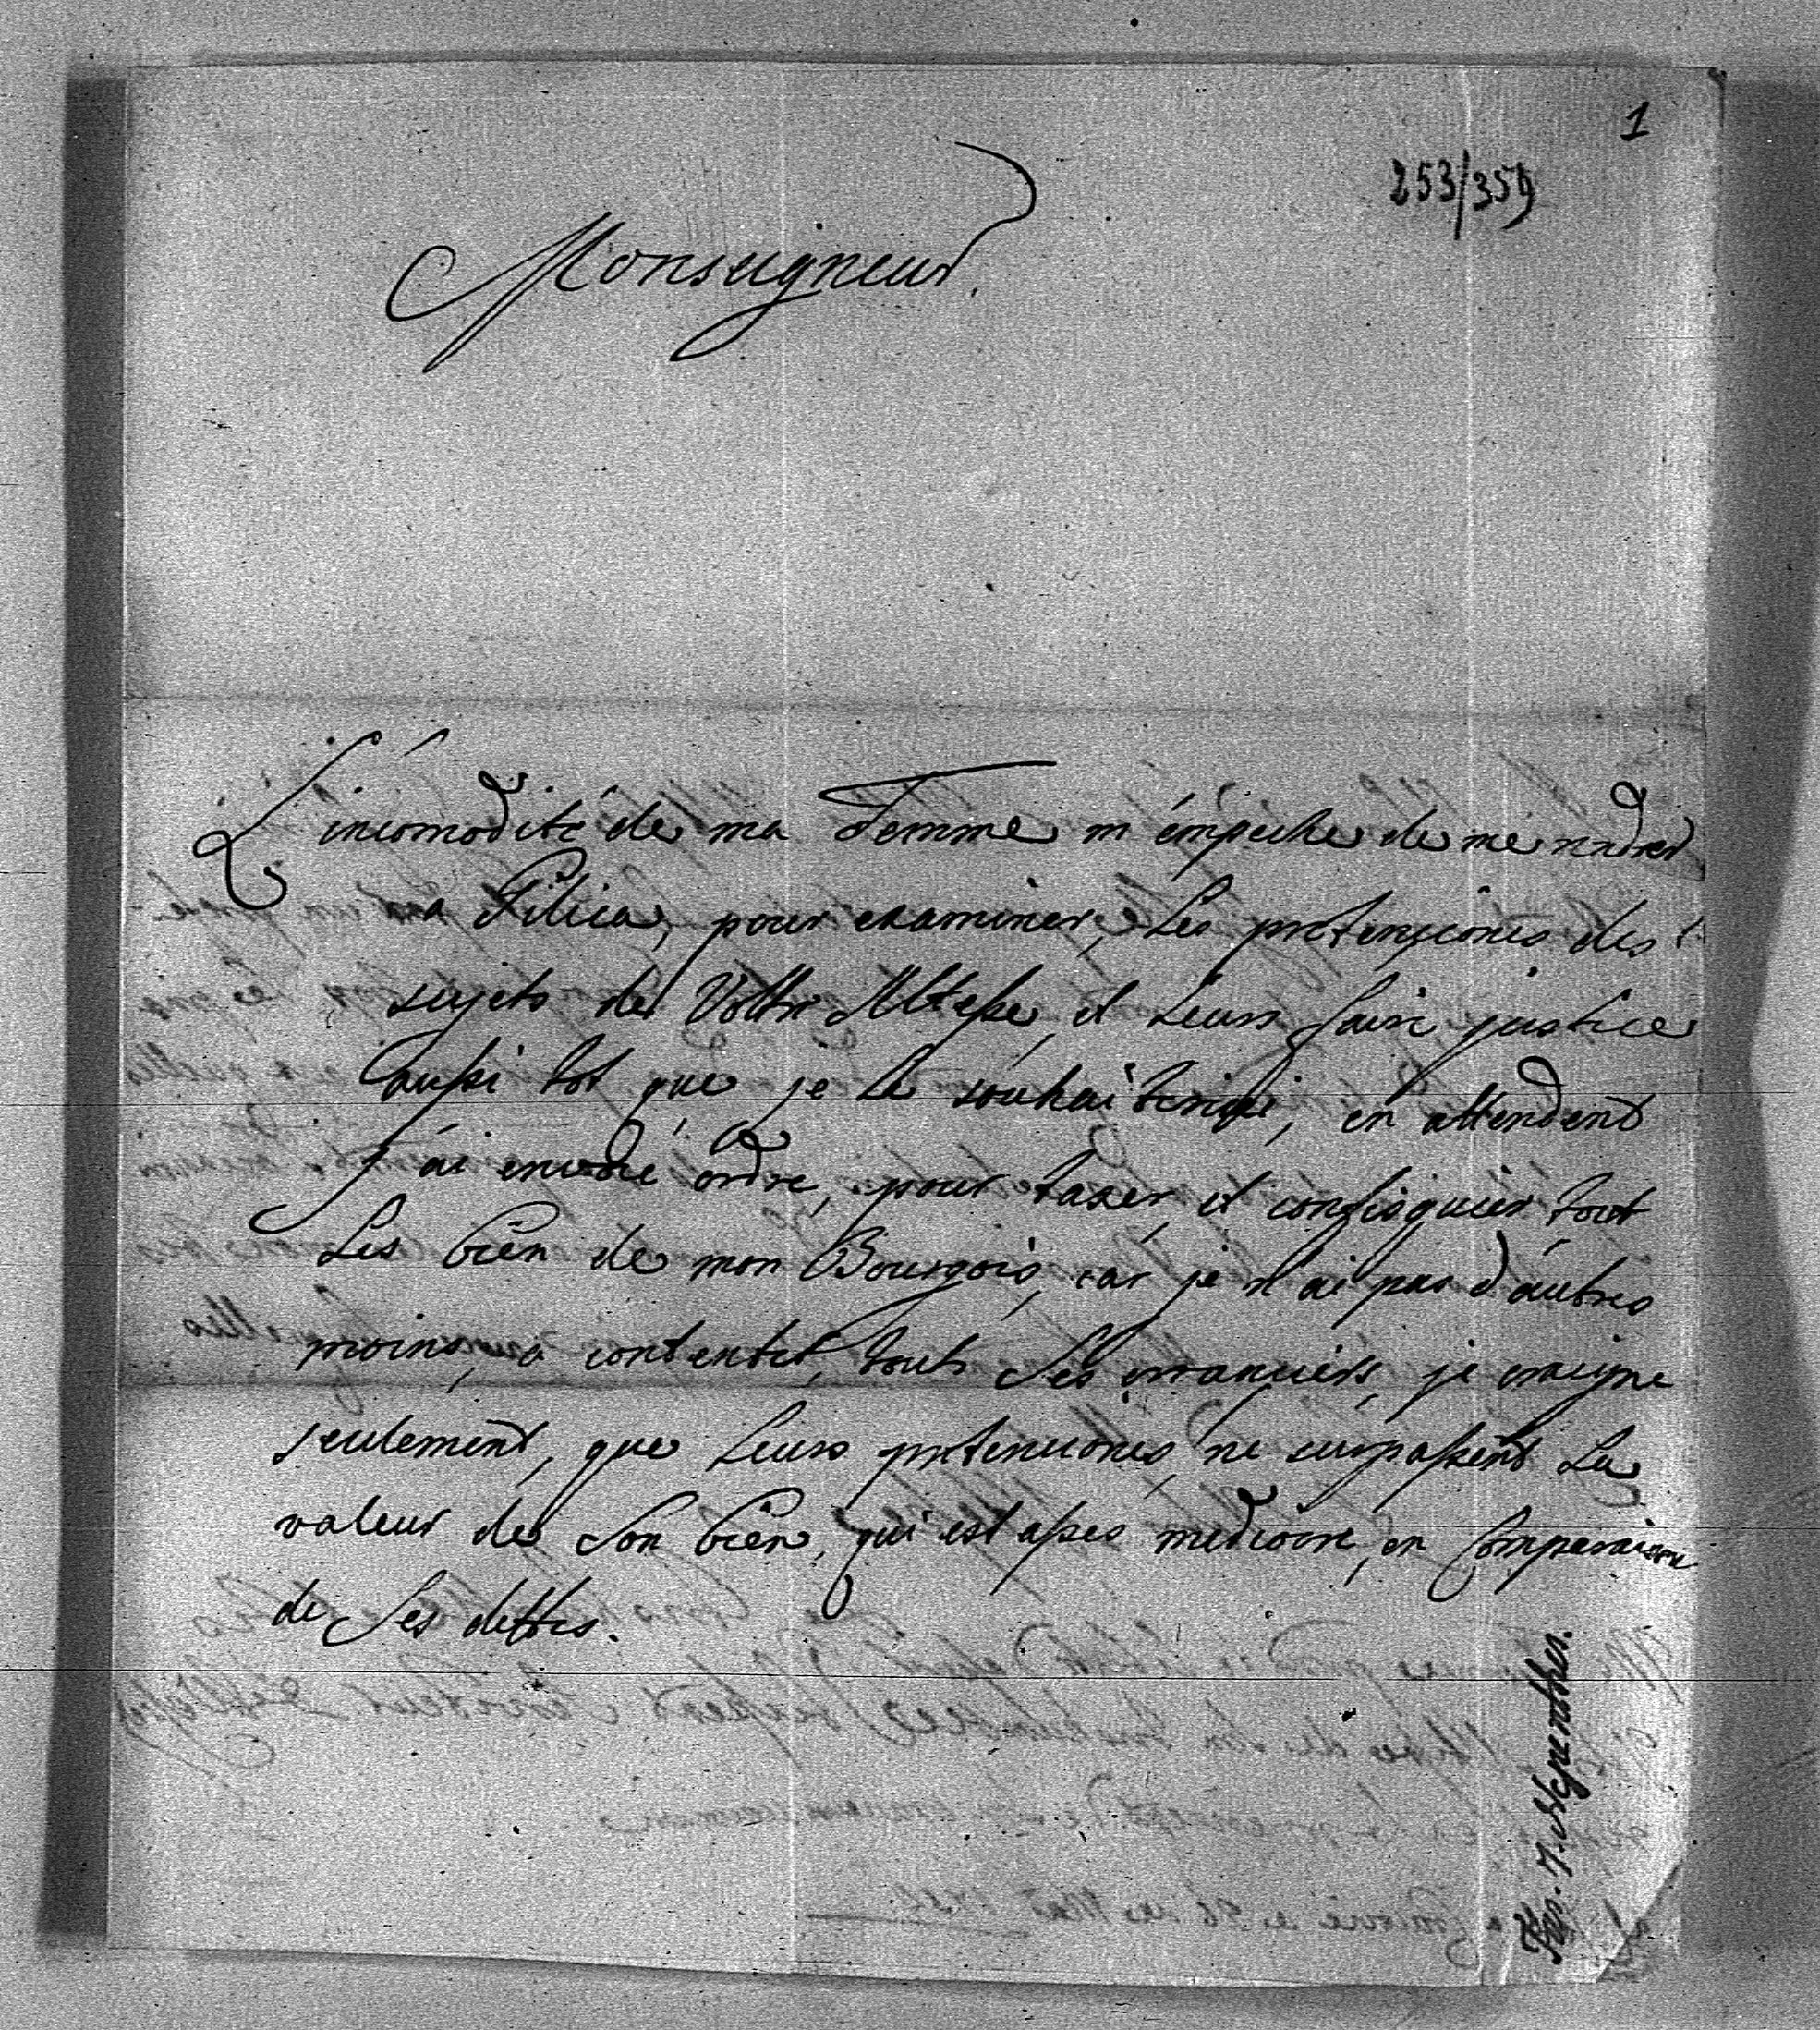 1
253/359
Monseigneur
L'incomodité de ma Femme m'émpeche de me rendre
a Pilica, pour examiner, Les pretensiones des
sujets de Vottre Altesse, et Leurs faire justice
aussi tot que je Le souhaiterois, en attendent
j'ai envoié ordre, pour taxer, et confisquier tout
Les bien de mon Bourgois, car je n'ai pas d'autres
moins, a contenter, touts Ses creanciers, je craigne
seulement, que Leurs pretensiones, ne surpassent La
valeur de Son bien, qui est asses mediocre, en Comparaison
de Ses dettes.